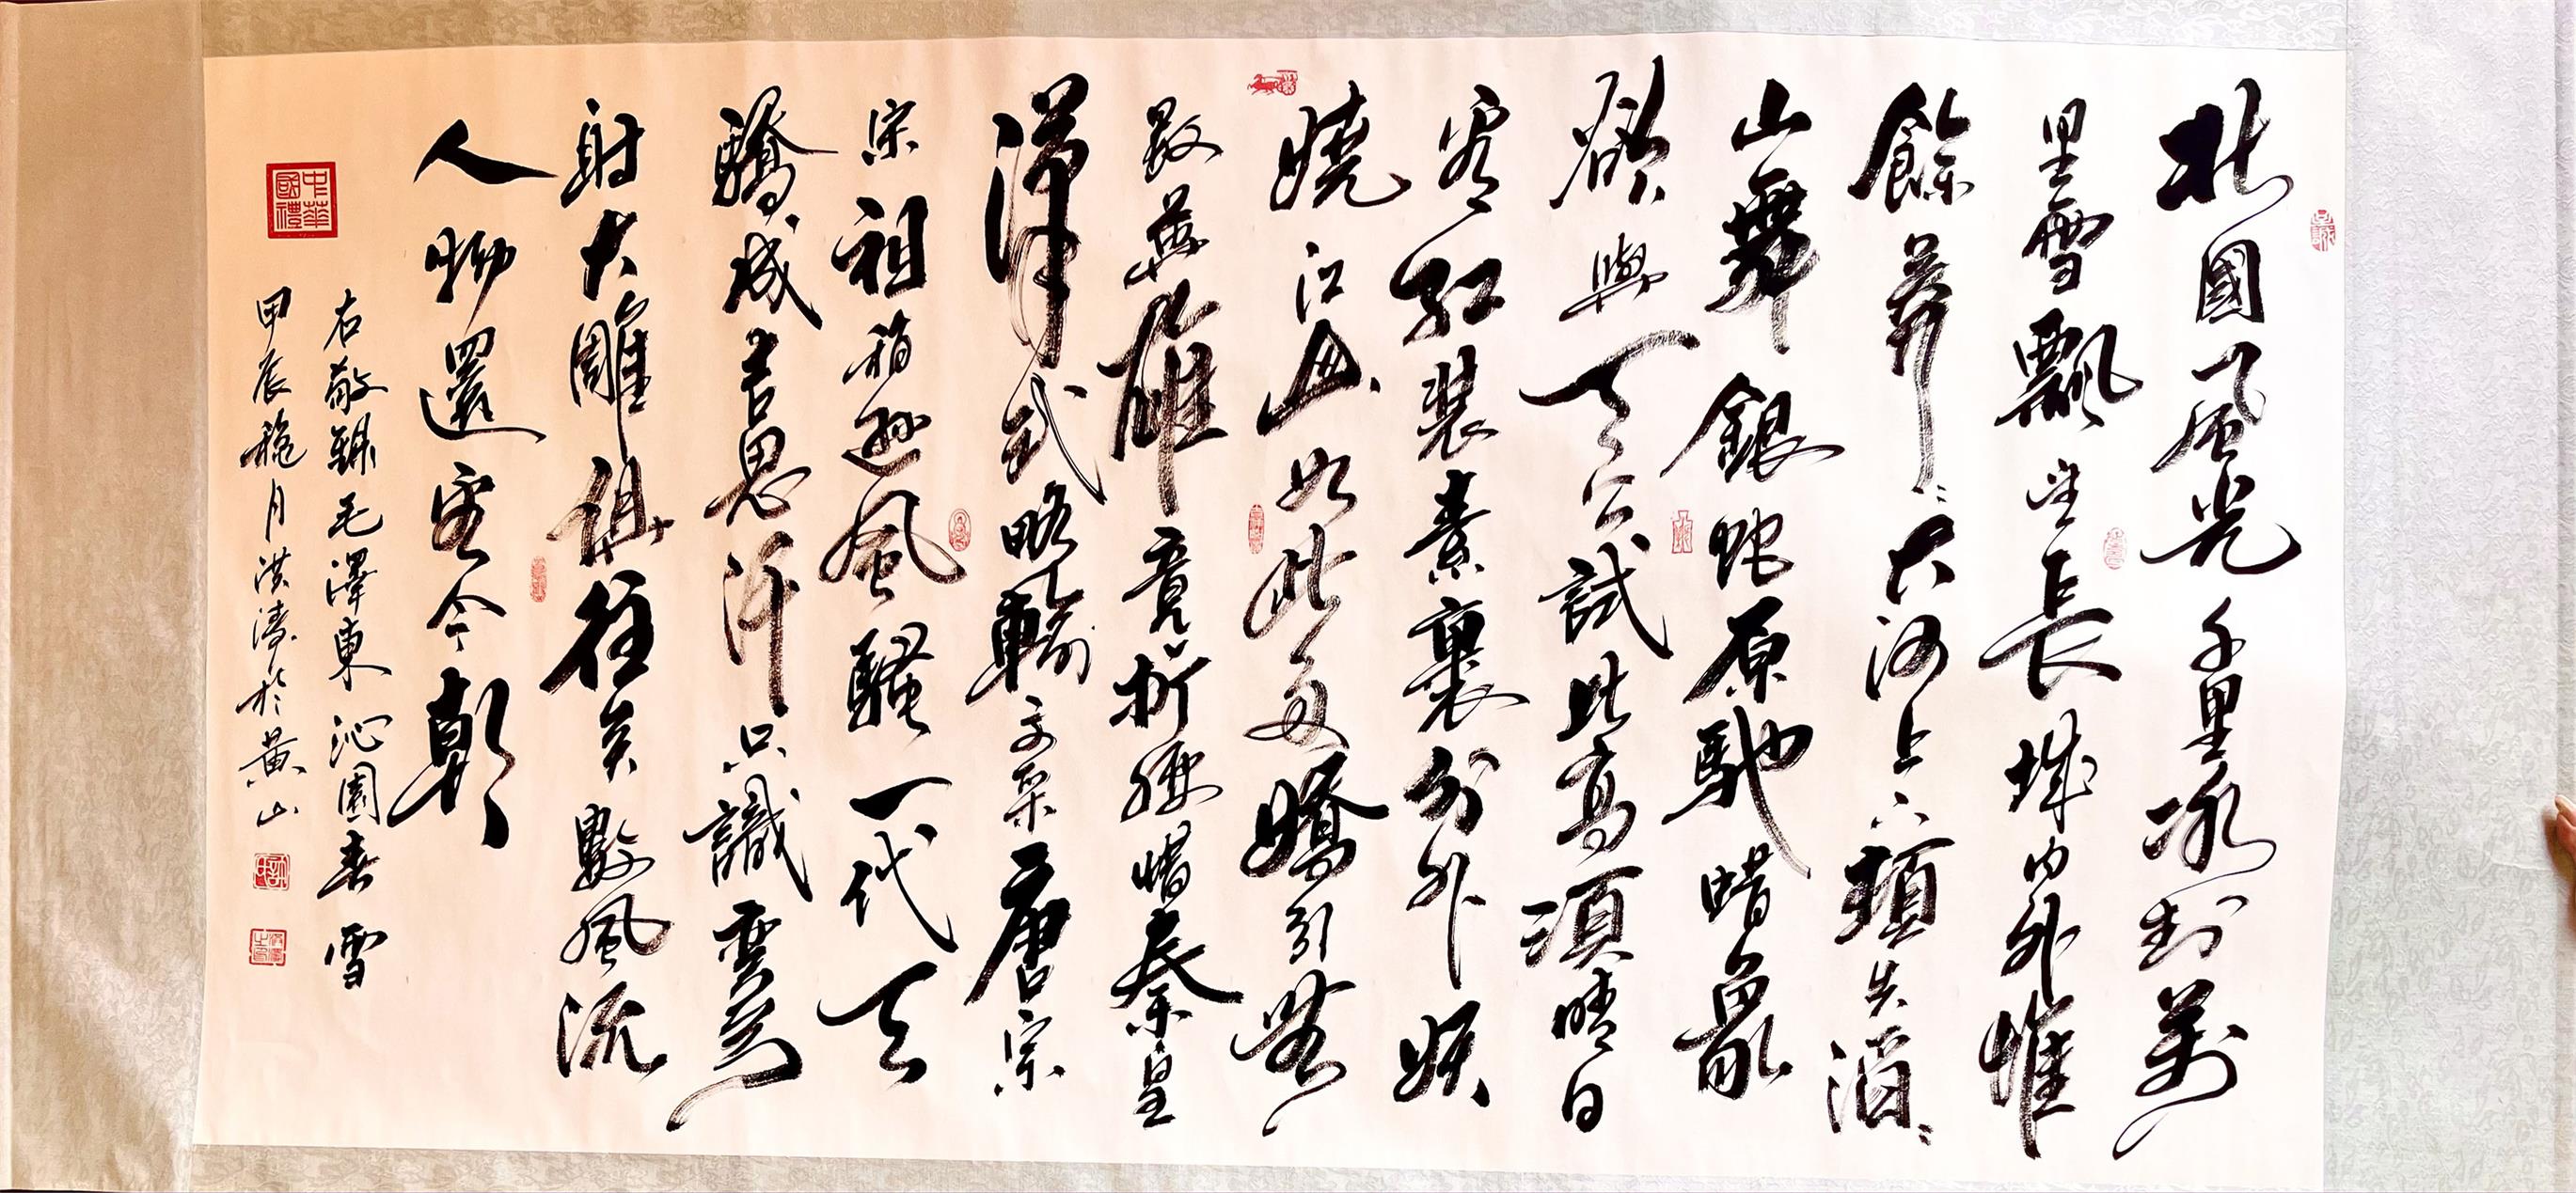 北國風光千里冰封萬
里雪飄望長城內外惟
餘莽〻大河上下頓失滔〻
山舞銀蛇原馳蜡象
欲與天公試比高須晴日
看紅裝素裹分外妖
嬈江山如此多嬌引無
數英雄竟折腰惜秦皇
漢武略輸文采唐宗
宋祖稍遜風騷一代天
驕成吉思汗只識彎弓
射大雕俱往矣數風流
人物還看今朝
右敬錄毛澤東沁園春雪
甲辰龝月洪濤於黃山
中華國禮